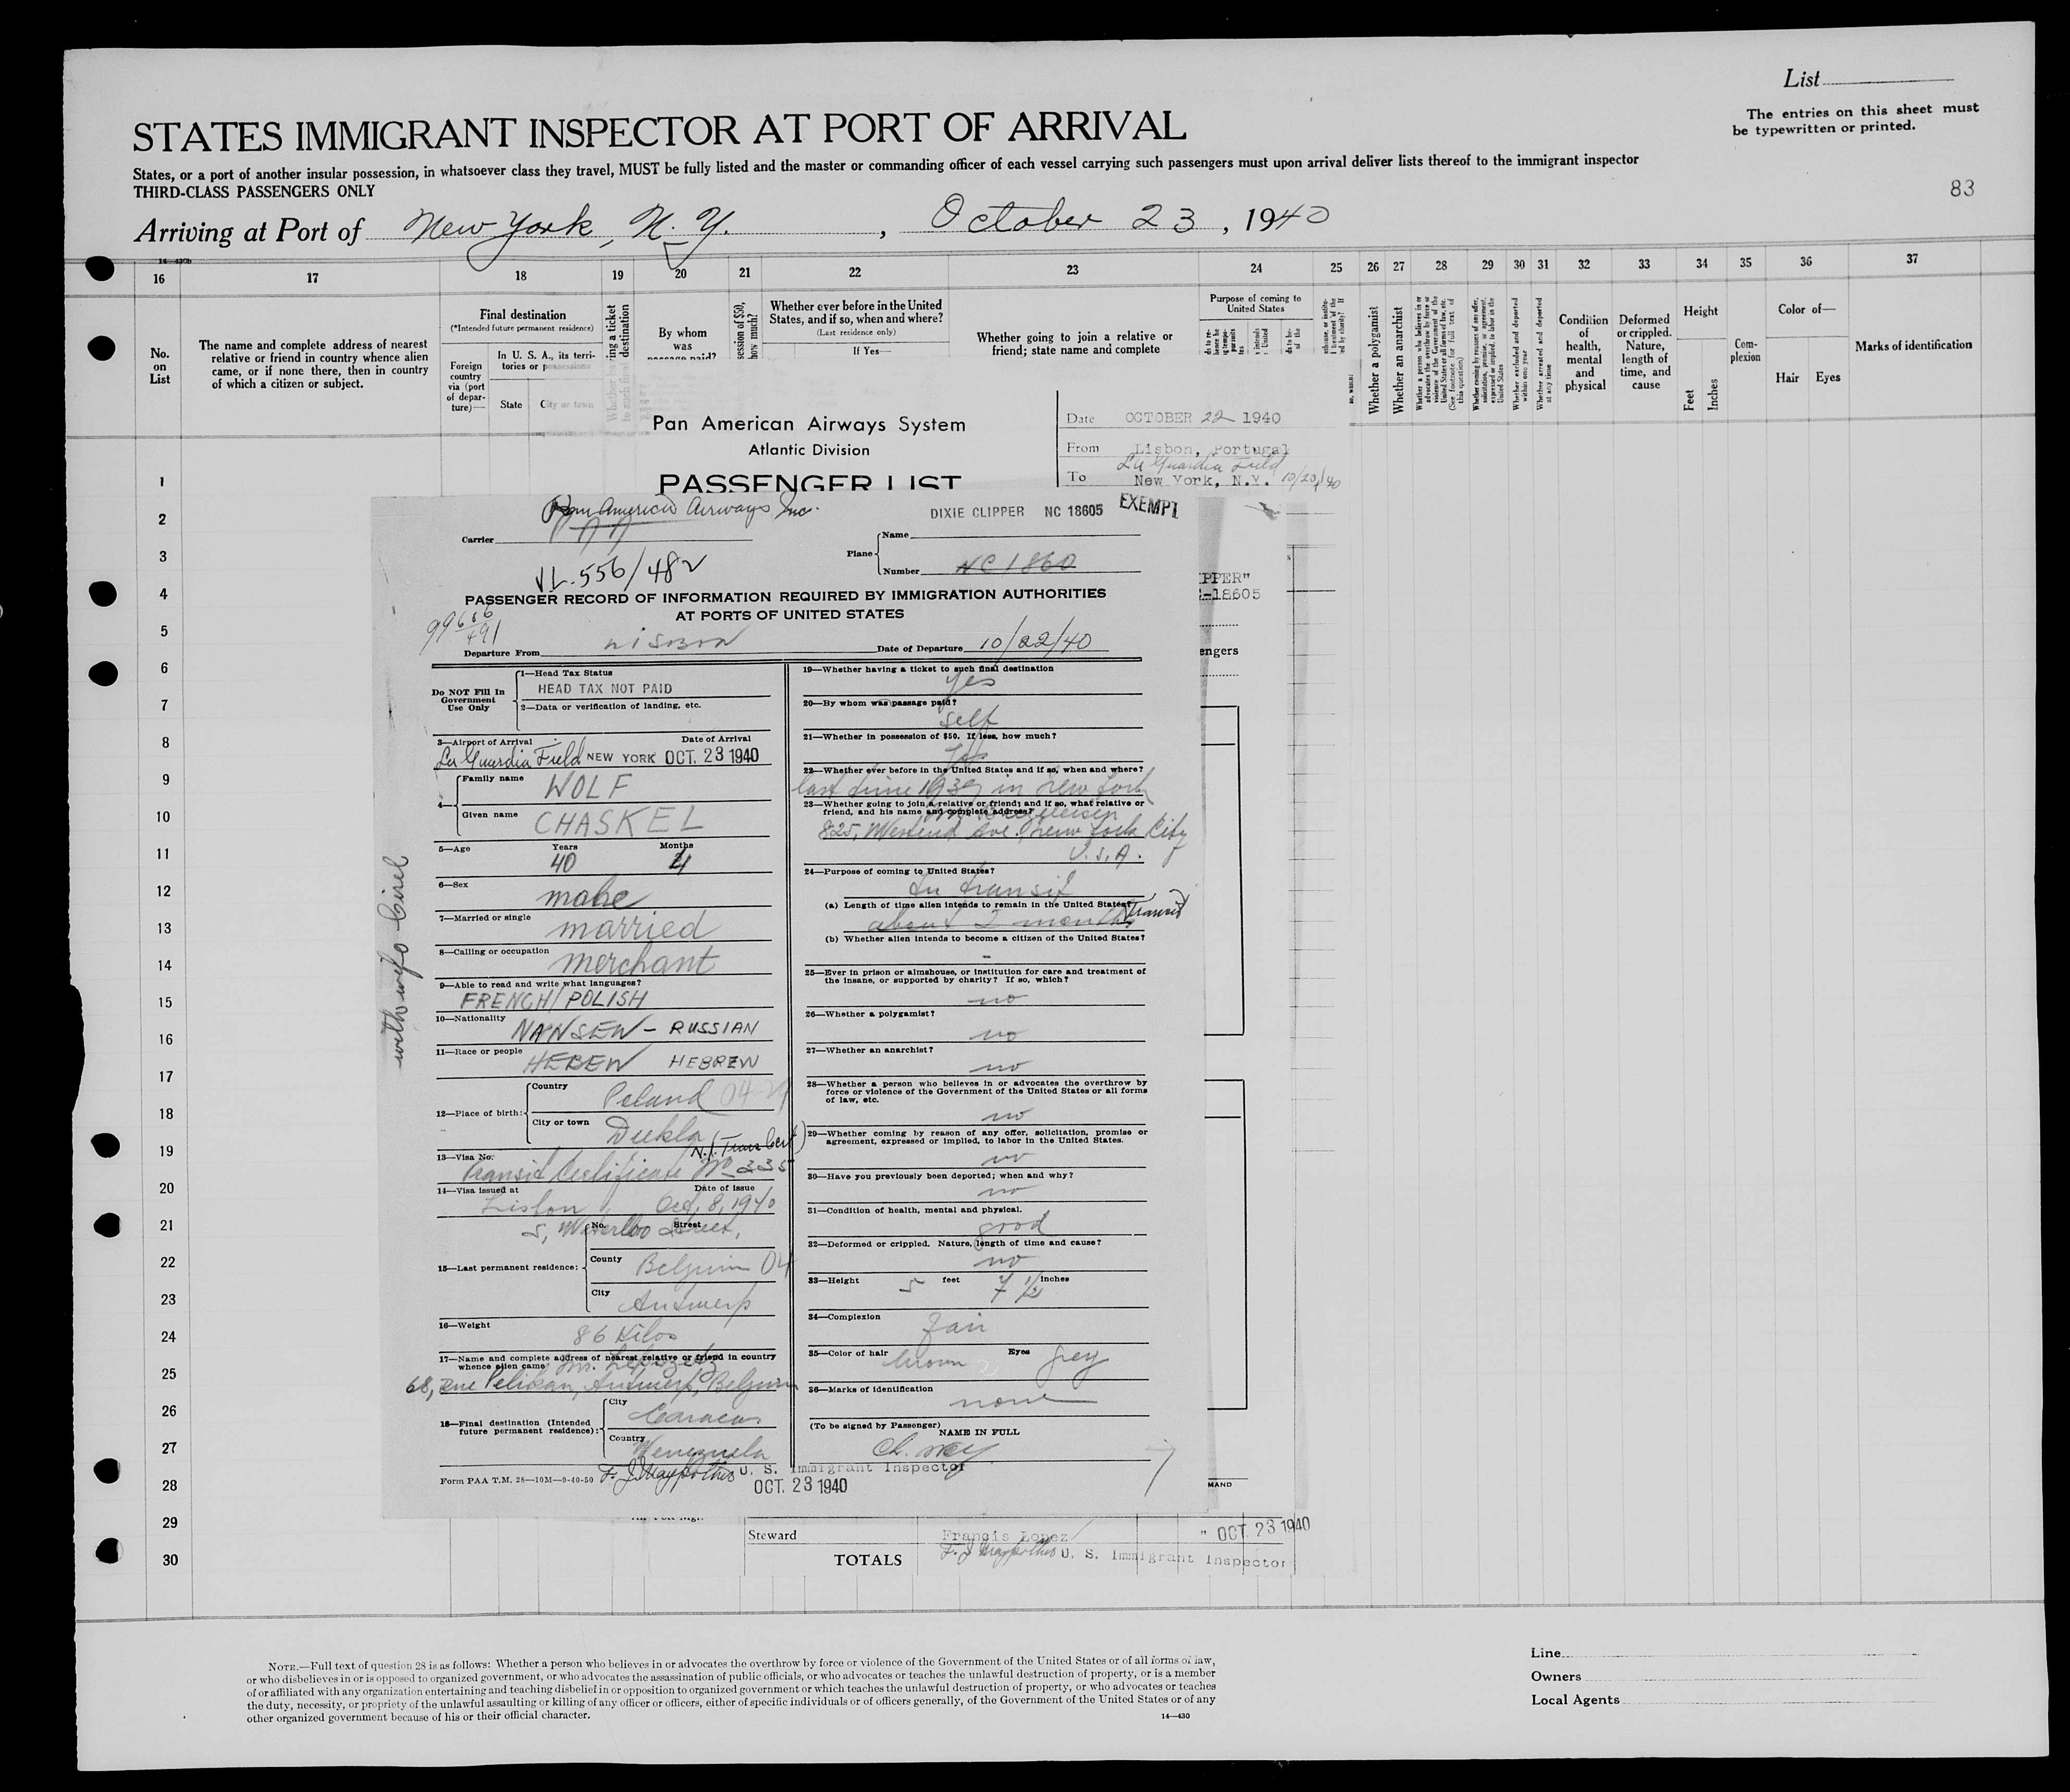 List
The entries on this sheet must
be typewritten or printed.
STATES IMMIGRANT INSPECTOR AT PORT OF ARRIVAL
States, or a port of another insular possession, in whatsoever class they travel, MUST be fully listed and the master or commanding officer of each vessel carrying such passengers must upon arrival deliver lists thereof to the immigrant inspector
THIRD-CLASS PASSENGERS ONLY
83
Arriving at Port of New York, N. Y., October 23, 1940
16 17 18 19 20 21 22 23 24 25 26 27 28 29 30 31 32 33 34 35 36 37
No. on List
The name and complete address of nearest
relative or friend in country whence alien
came, or if none there, then in country
of which a citizen or subject.
Final destination
(*Intended future permanent residence)
Foreign country via (port of departure)—
In U. S. A., its territories or possessions
State
City or town
By whom was passage paid?
Whether ever before in the United
States, and if so, when and where?
(Last residence only)
If Yes—
Whether going to join a relative or
friend; state name and complete
Purpose of coming to
United States
Whether a polygamist
Whether an anarchist
Whether excluded and deported within one year
Whether arrested and deported at any time
Condition of health, mental and physical
Deformed or crippled. Nature, length of time, and cause
Height
Feet
Inches
Complexion
Color of—
Hair
Eyes
Marks of identification
Pan American Airways System
Atlantic Division
PASSENGER LIST
Date OCTOBER 22 1940
From Lisbon, Portugal
La Guardia Field
To New York, N.Y. 10/23/40
1
2
3
4
5
6
7
8
9
10
11
12
13
14
15
16
17
18
19
20
21
22
23
24
25
26
27
28
29
30
Pan American Airways Inc.
DIXIE CLIPPER NC 18605 EXEMPT
Carrier
Plane
Name
Number NC 1860
V.L. 556/482
PASSENGER RECORD OF INFORMATION REQUIRED BY IMMIGRATION AUTHORITIES
AT PORTS OF UNITED STATES
Departure From LISBON Date of Departure 10/22/40
Do NOT Fill In
Government
Use Only
1—Head Tax Status
HEAD TAX NOT PAID
2—Data or verification of landing, etc.
3—Airport of Arrival Date of Arrival
La Guardia Field NEW YORK OCT. 23 1940
4—
Family name WOLF
Given name CHASKEL
5—Age Years 40 Months 4
6—Sex male
7—Married or single married
8—Calling or occupation merchant
9—Able to read and write what languages?
FRENCH/POLISH
10—Nationality NANSEN — RUSSIAN
11—Race or people HEBEW HEBREW
12—Place of birth:
Country Poland
City or town Dukla
13—Visa No. N.I. Trans Cert
Transit Certificate No 335
14—Visa issued at Date of issue
Lisbon, Oct, 8, 1940
15—Last permanent residence:
No. Street 5, Waterloo Street,
County Belgium 04
City Antwerp
16—Weight 86 Kilos
17—Name and complete address of nearest relative or friend in country
whence alien came
68, Rue Pelikan, Antwerp, Belgium
18—Final destination (Intended
future permanent residence):
City Caracas
Country Venezuela
Form PAA T.M. 28—10M—9-40-50
U. S. Immigrant Inspector
OCT. 23 1940
with wife Cirel
19—Whether having a ticket to such final destination
yes
20—By whom was passage paid?
self
21—Whether in possession of $50. If less, how much?
yes
22—Whether ever before in the United States and if so, when and where?
last time 1939 in New York
23—Whether going to join a relative or friend; and if so, what relative or
friend, and his name and complete address?
825, Westend Ave. New York City
U.S.A.
24—Purpose of coming to United States?
In transit
(a) Length of time alien intends to remain in the United States?
about 2 months Transit
(b) Whether alien intends to become a citizen of the United States?
-
25—Ever in prison or almshouse, or institution for care and treatment of
the insane, or supported by charity? If so, which?
no
26—Whether a polygamist?
no
27—Whether an anarchist?
no
28—Whether a person who believes in or advocates the overthrow by
force or violence of the Government of the United States or all forms
of law, etc.
no
29—Whether coming by reason of any offer, solicitation, promise or
agreement, expressed or implied, to labor in the United States.
no
30—Have you previously been deported; when and why?
no
31—Condition of health, mental and physical.
good
32—Deformed or crippled. Nature, length of time and cause?
no
33—Height 5 feet 7 1/2 inches
34—Complexion fair
35—Color of hair brown Eyes grey
36—Marks of identification
none
(To be signed by Passenger)
NAME IN FULL
PPER"
-18605
engers
MAND
Steward Francis Lopez " OCT. 23 1940
TOTALS U. S. Immigrant Inspector
NOTE.—Full text of question 28 is as follows: Whether a person who believes in or advocates the overthrow by force or violence of the Government of the United States or of all forms of law,
or who disbelieves in or is opposed to organized government, or who advocates the assassination of public officials, or who advocates or teaches the unlawful destruction of property, or is a member
of or affiliated with any organization entertaining and teaching disbelief in or opposition to organized government or which teaches the unlawful destruction of property, or who advocates or teaches
the duty, necessity, or propriety of the unlawful assaulting or killing of any officer or officers, either of specific individuals or of officers generally, of the Government of the United States or of any
other organized government because of his or their official character.
14—430
Line
Owners
Local Agents